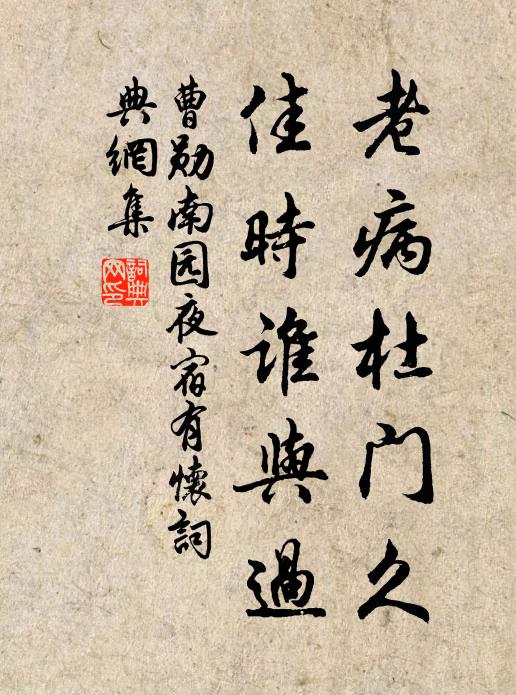 老病杜門久
佳時誰與過
曹勛南园夜宿有懷詞
典網集
詞典
网印